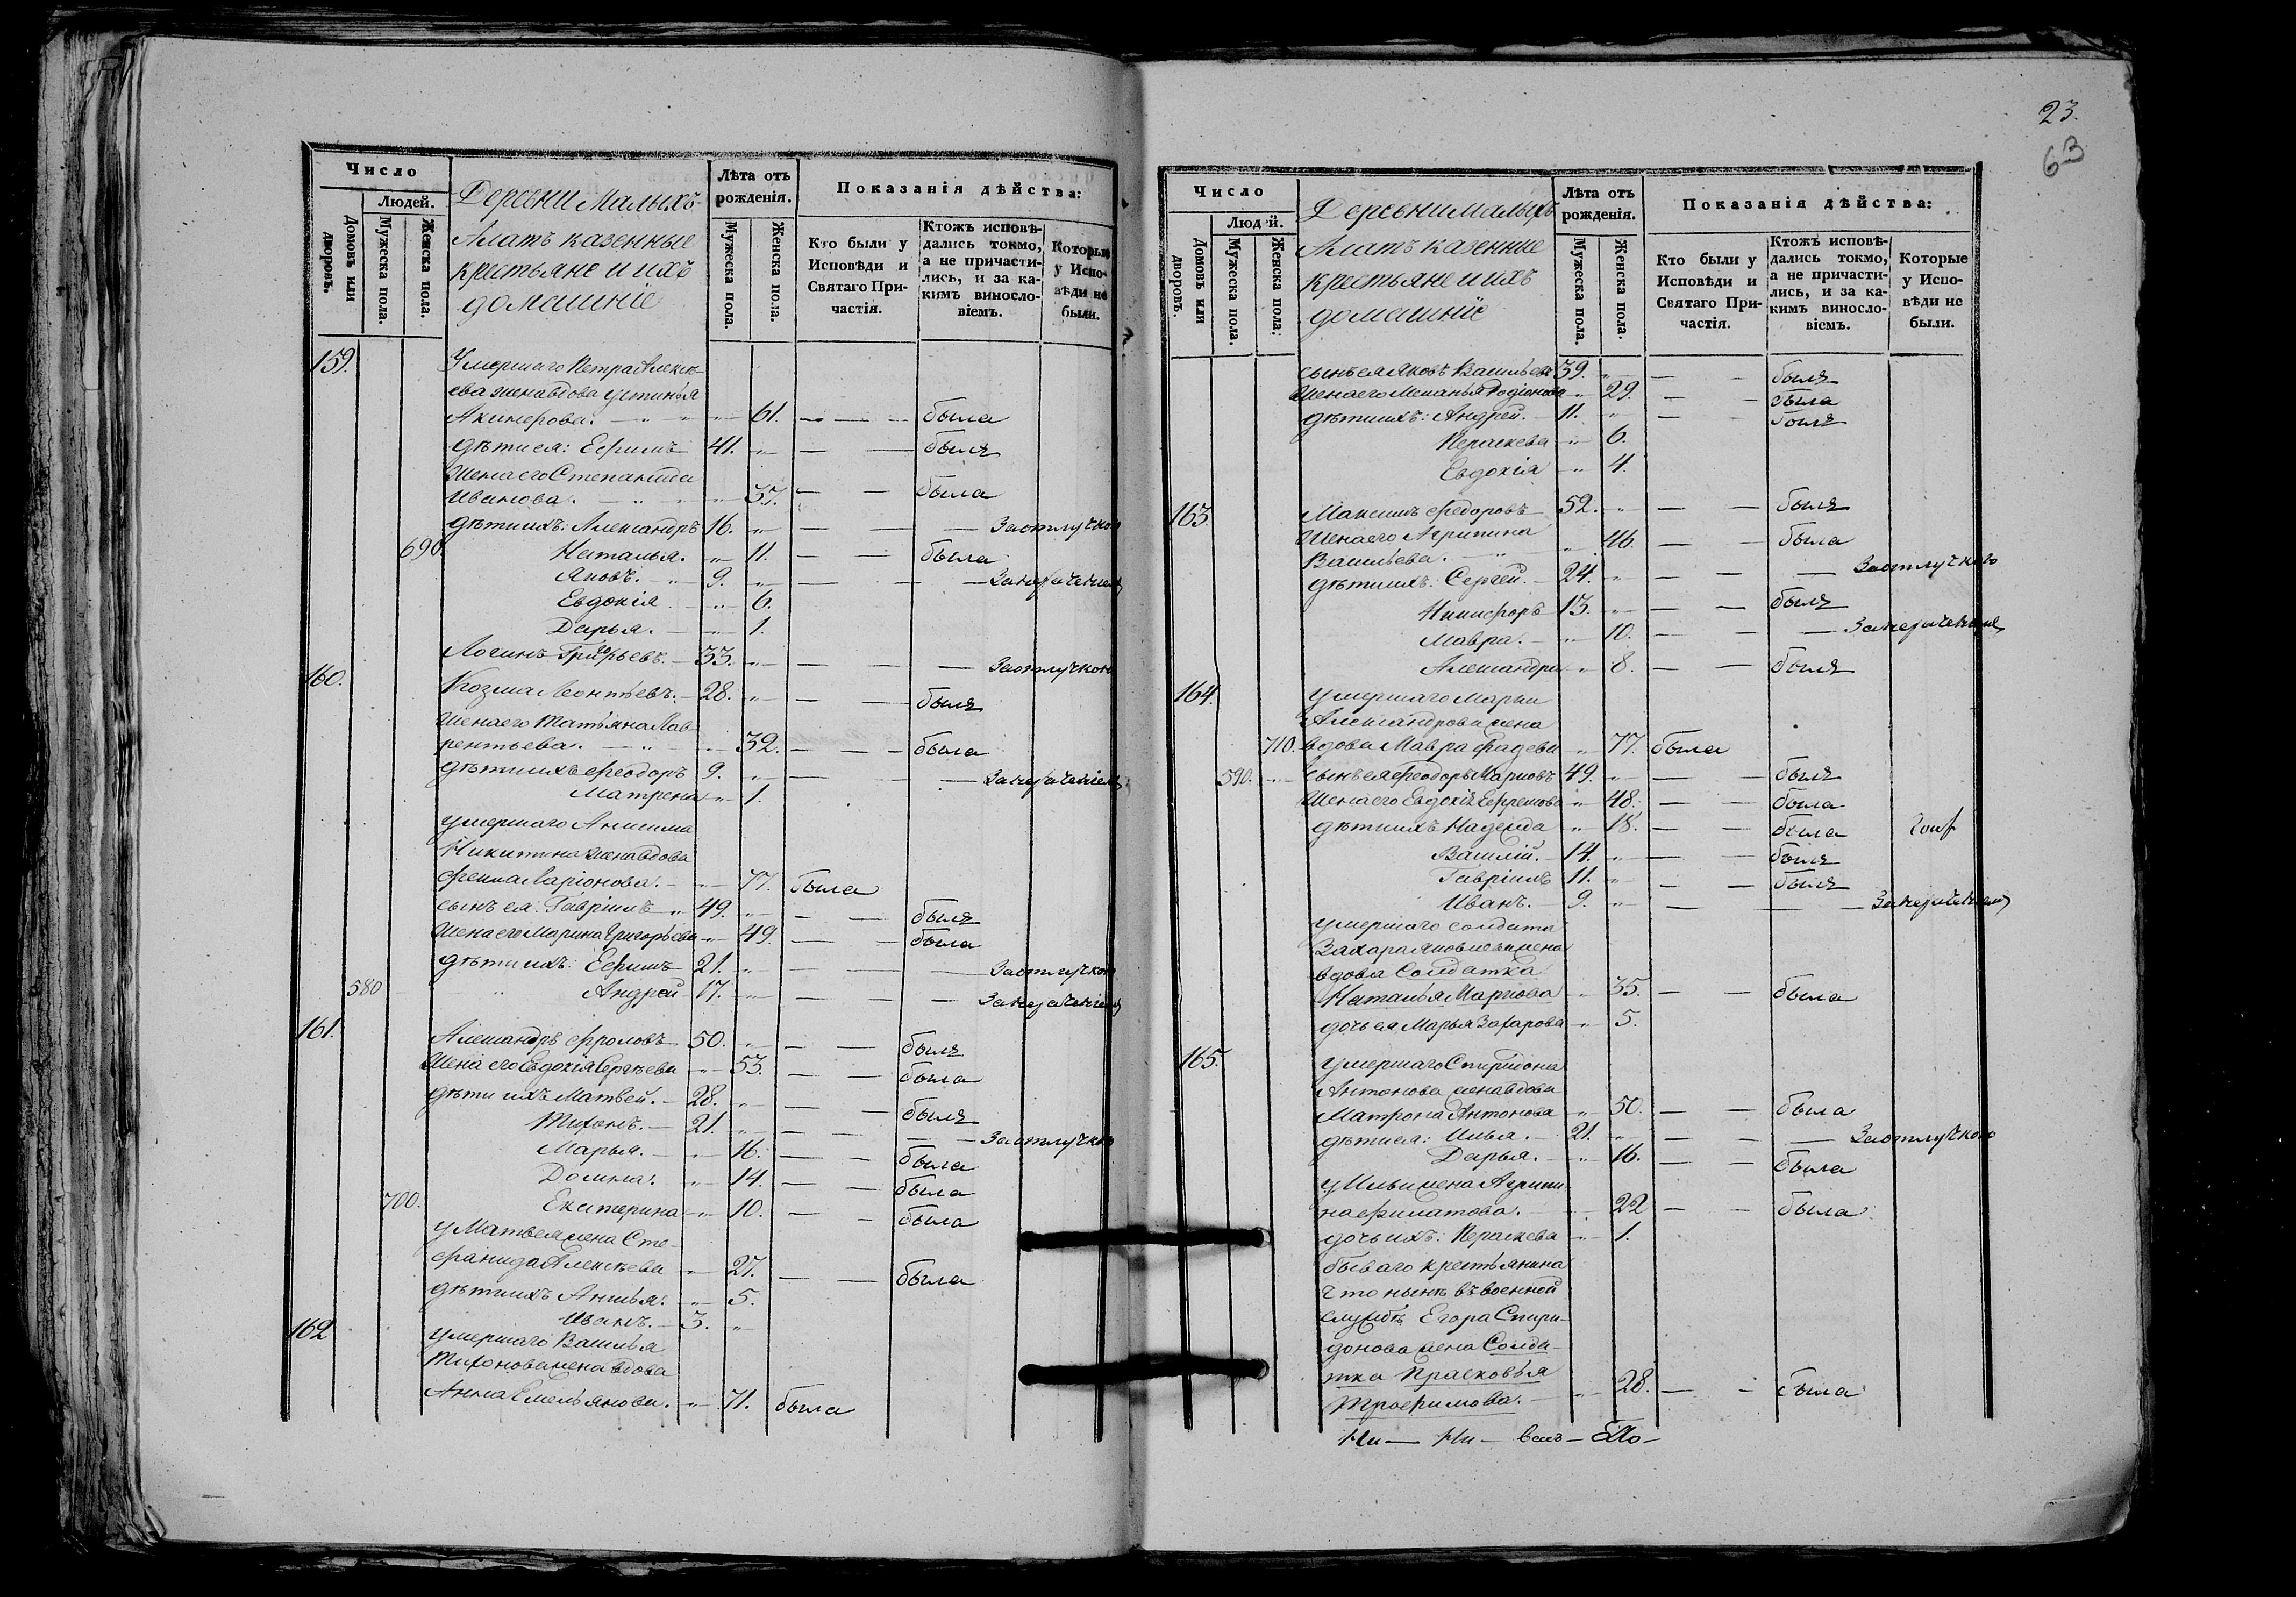 23.
63
Число
Людей.
Домовъ или дворовъ.
Мужеска пола.
Женска пола.
Деревни Малыхъ
Алатъ казенные
крестьяне и ихъ
домашніе
Лѣта отъ рожденія.
Мужеска пола.
Женска пола.
Показанія дѣйства:
Кто были у Исповѣди и Святаго Причастія.
Ктожъ исповѣдались токмо, а не причастились, и за какимъ винословіемъ.
Которые у Исповѣди не были.
159. Умершаго Петра Алексѣ-
ева жена вдова Устинья
Акинфова. 61. была
дѣти ея: Ефимъ 41. былъ
Жена его Степанида
Иванова. 37. была
дѣти ихъ: Александръ 16. За отлучкою
690. Наталья. 11. была
Яковъ. 9. За нераченіемъ
Евдокія 6.
Дарья. 1.
Логинъ Григорьевъ. 33. За отлучкою
160. Козма Леонтьевъ. 28. былъ
Жена его Татьяна Лав-
рентьева. 32. была
дѣти ихъ Феодоръ 9. За нераченіемъ
Матрена 1.
умершаго Анисима
Никитина жена вдова
Фекла Ларіонова. 77. была
сынъ ея: Гавріилъ 49. былъ
Жена его Марина Григорьева 49. была
дѣти ихъ: Ефимъ 21. За отлучкою
580 Андрей 17. За нераченіемъ
161. Александръ Фроловъ 50. былъ
Жена его Евдокія Сергѣева 53. была
дѣти ихъ Матвей. 28. былъ
Тихонъ. 21. За отлучкою
Марья. 16. была
Домна. 14. была
700. Екатерина 10. была
у Матвея жена Сте-
фанида Алексѣева 27. была
дѣти ихъ Анисья. 5.
Иванъ. 3.
162 умершаго Василья
Тихонова жена вдова
Анна Емельянова. 71. была
Число
Люд й.
Домовъ или дворовъ.
Мужеска пола.
Женска пола.
Деревни Малыхъ
Алатъ казенные
крестьяне и ихъ
домашніе
Лѣта отъ рожденія.
Мужеска пола.
Женска пола.
Показанія дѣйства:
Кто были у Исповѣди и Святаго Причастія.
Ктожъ исповѣдались токмо, а не причастились, и за какимъ винословіемъ.
Которые у Исповѣди не были.
сынъ ея Яковъ Васильевъ 39. былъ
Жена его Меланья Родіонова 29. была
дѣти ихъ: Андрей. 11. былъ
Параскева 6.
Евдокія 4.
163. Максимъ Федоровъ 52. былъ
Жена его Агрипина
Васильева. 46. была
дѣти ихъ: Сергей. 24. За отлучкою
Никифоръ 13. былъ
Мавра. 10. За нераченіемъ
Александра 8. былъ
164. умершаго Марка
Александрова жена
710. вдова Мавра Фадеева 77. была
590. сынъ ея Феодоръ Марковъ 49. былъ
Жена его Евдокія Ефремова 48. была
дѣти ихъ Надежда 18. была
Василій. 14. былъ
Гавріилъ 11. былъ
Иванъ. 9. За нераченіемъ
умершаго солдата
Захара Яковлева жена
вдова Солдатка
Наталья Маркова 35. была
дочь ея Марья Захарова 5.
165. умершаго Спиридона
Антонова жена вдова
Матрона Антонова 50. была
дѣти ея: Илья. 21. За отлучкою
Дарья. 16. была
у Ильи жена Агрипи-
на Филатова. 22 была
дочь ихъ: Параскева 1.
бываго крестьянина
что нынѣ въ военной
службѣ Егора Спири-
донова жена Солда-
тка Прасковья
Трофимова. 28. была